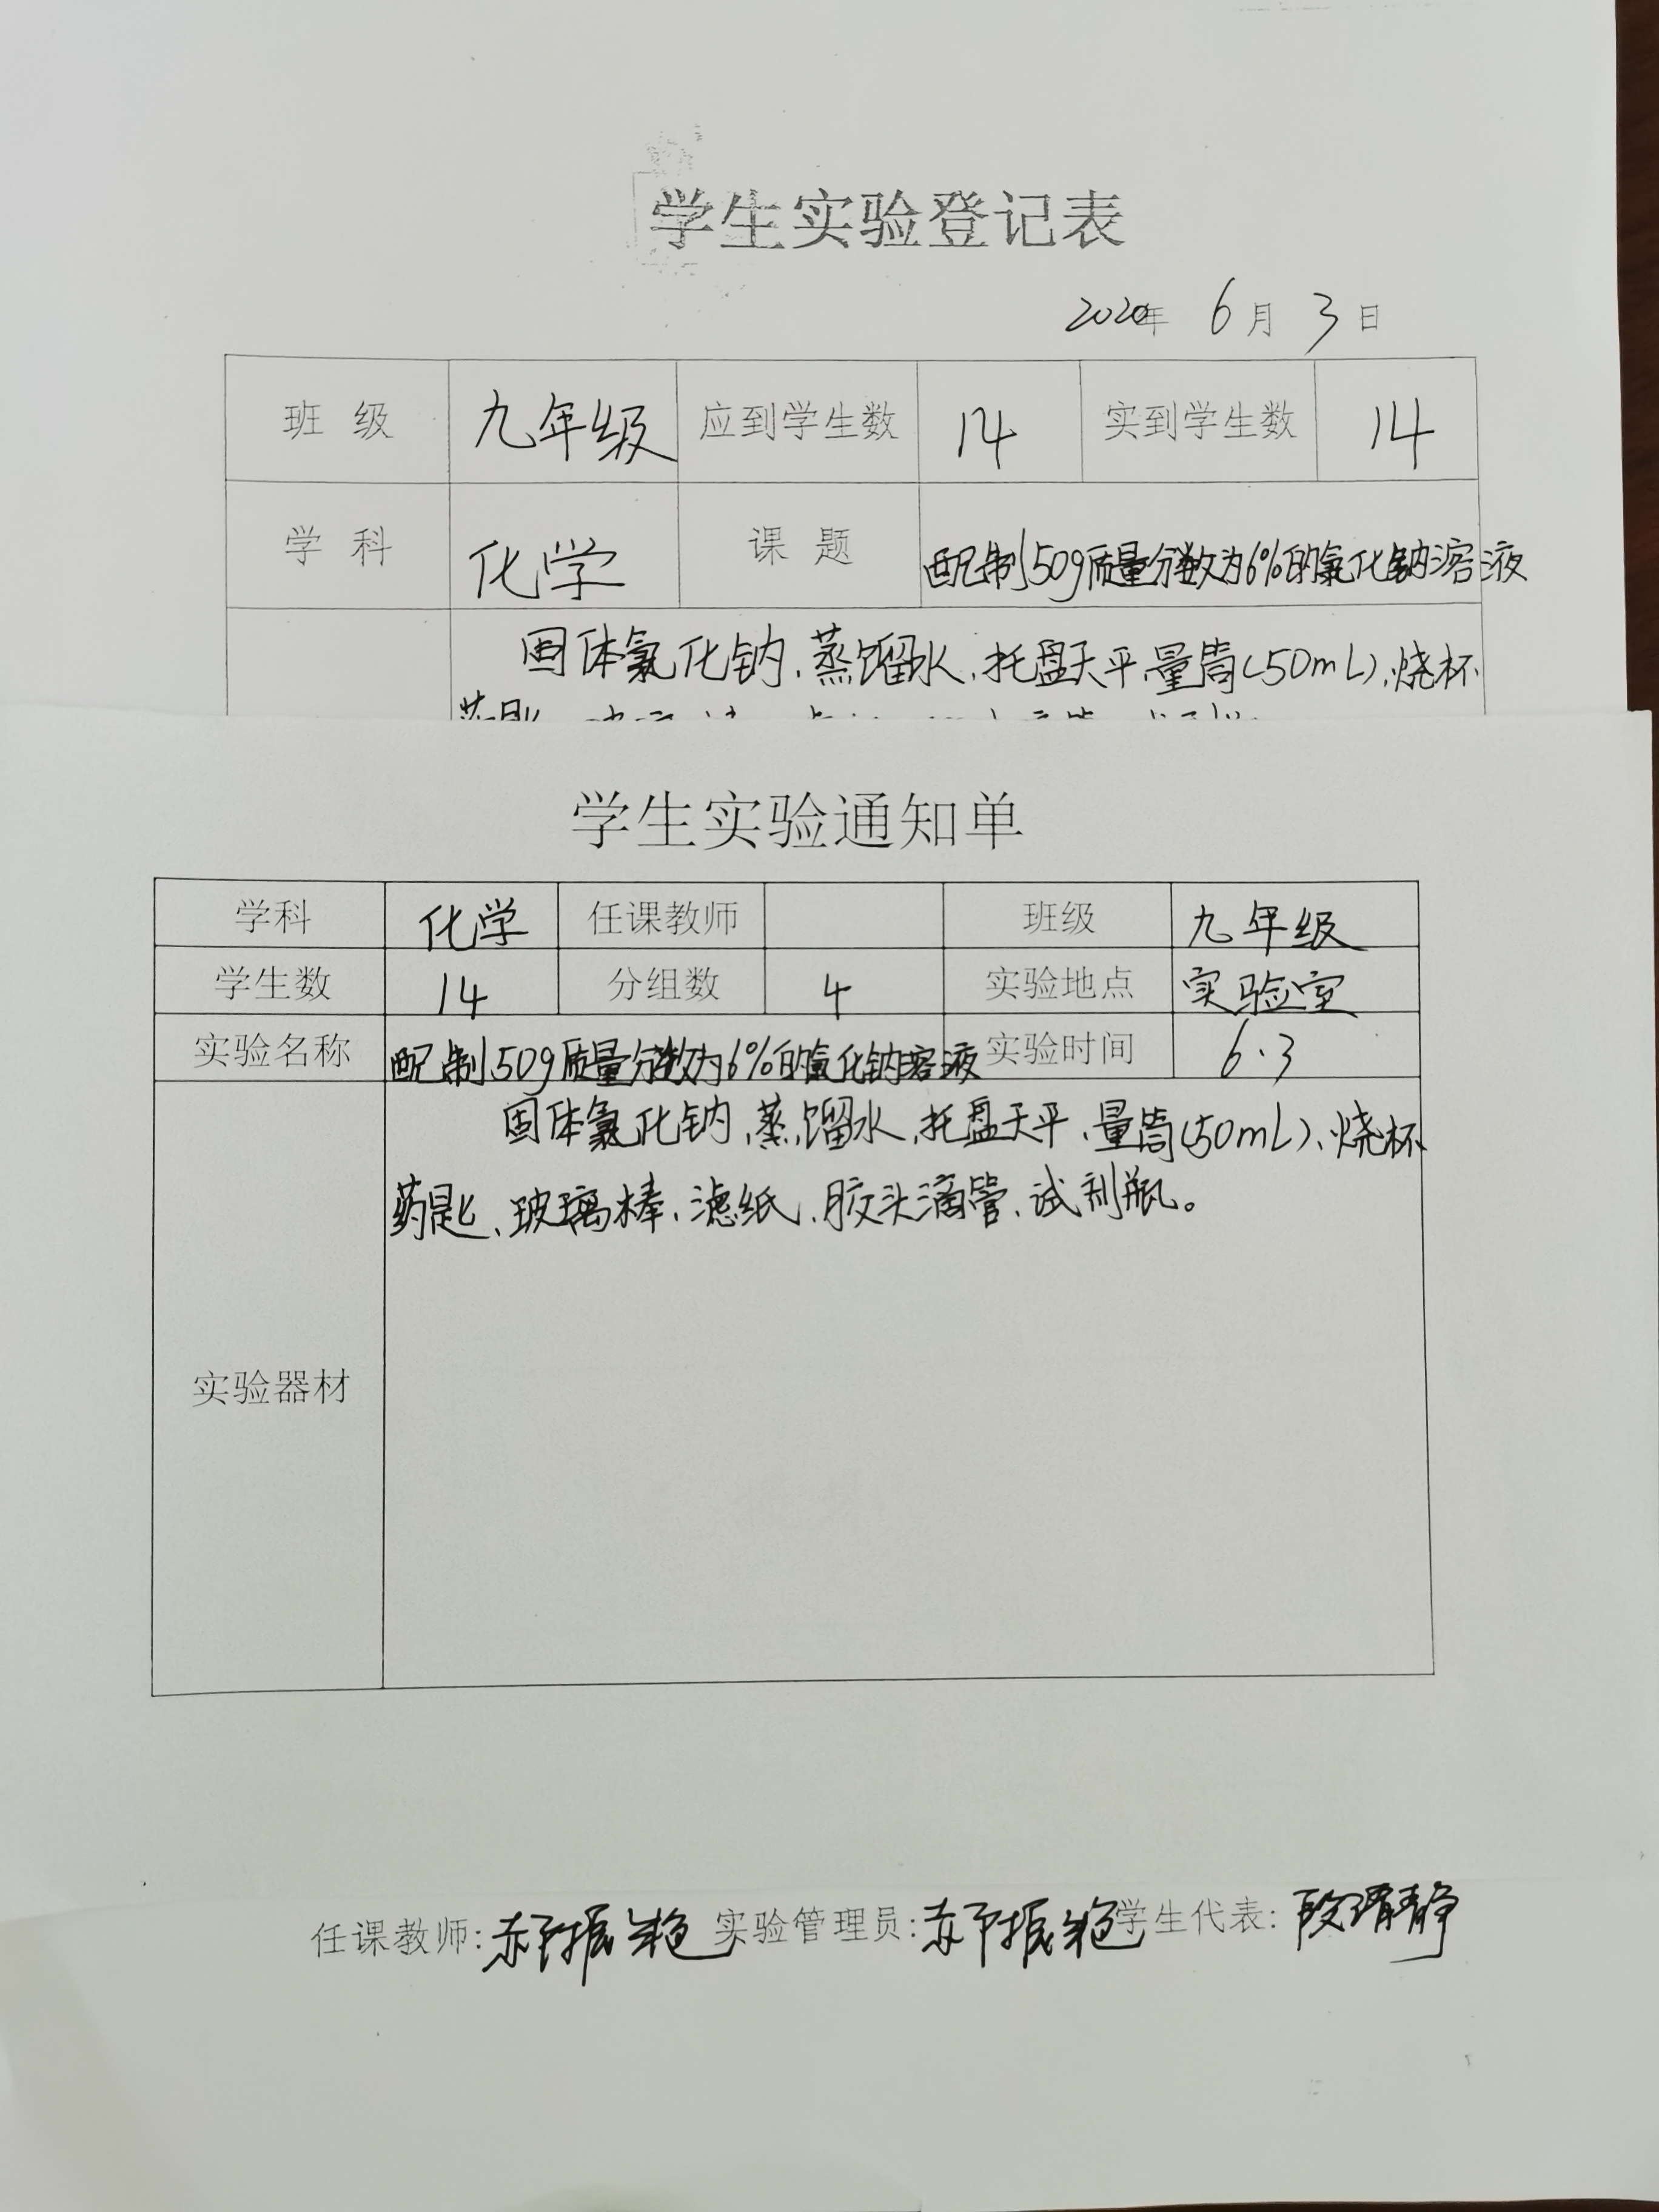 学生实验登记表
2020年 6月 3日
班级 九年级 应到学生数 14 实到学生数 14
学科 化学 课题 配制50g质量分数为6%的氯化钠溶液
固体氯化钠、蒸馏水、托盘天平、量筒(50mL)、烧杯
学生实验通知单
学科 化学 任课教师 班级 九年级
学生数 14 分组数 4 实验地点 实验室
实验名称 配制50g质量分数为6%的氯化钠溶液 实验时间 6.3
固体氯化钠、蒸馏水、托盘天平、量筒(50mL)、烧杯
药匙、玻璃棒、滤纸、胶头滴管、试剂瓶。
实验器材
任课教师: 实验管理员: 学生代表: 段靖静